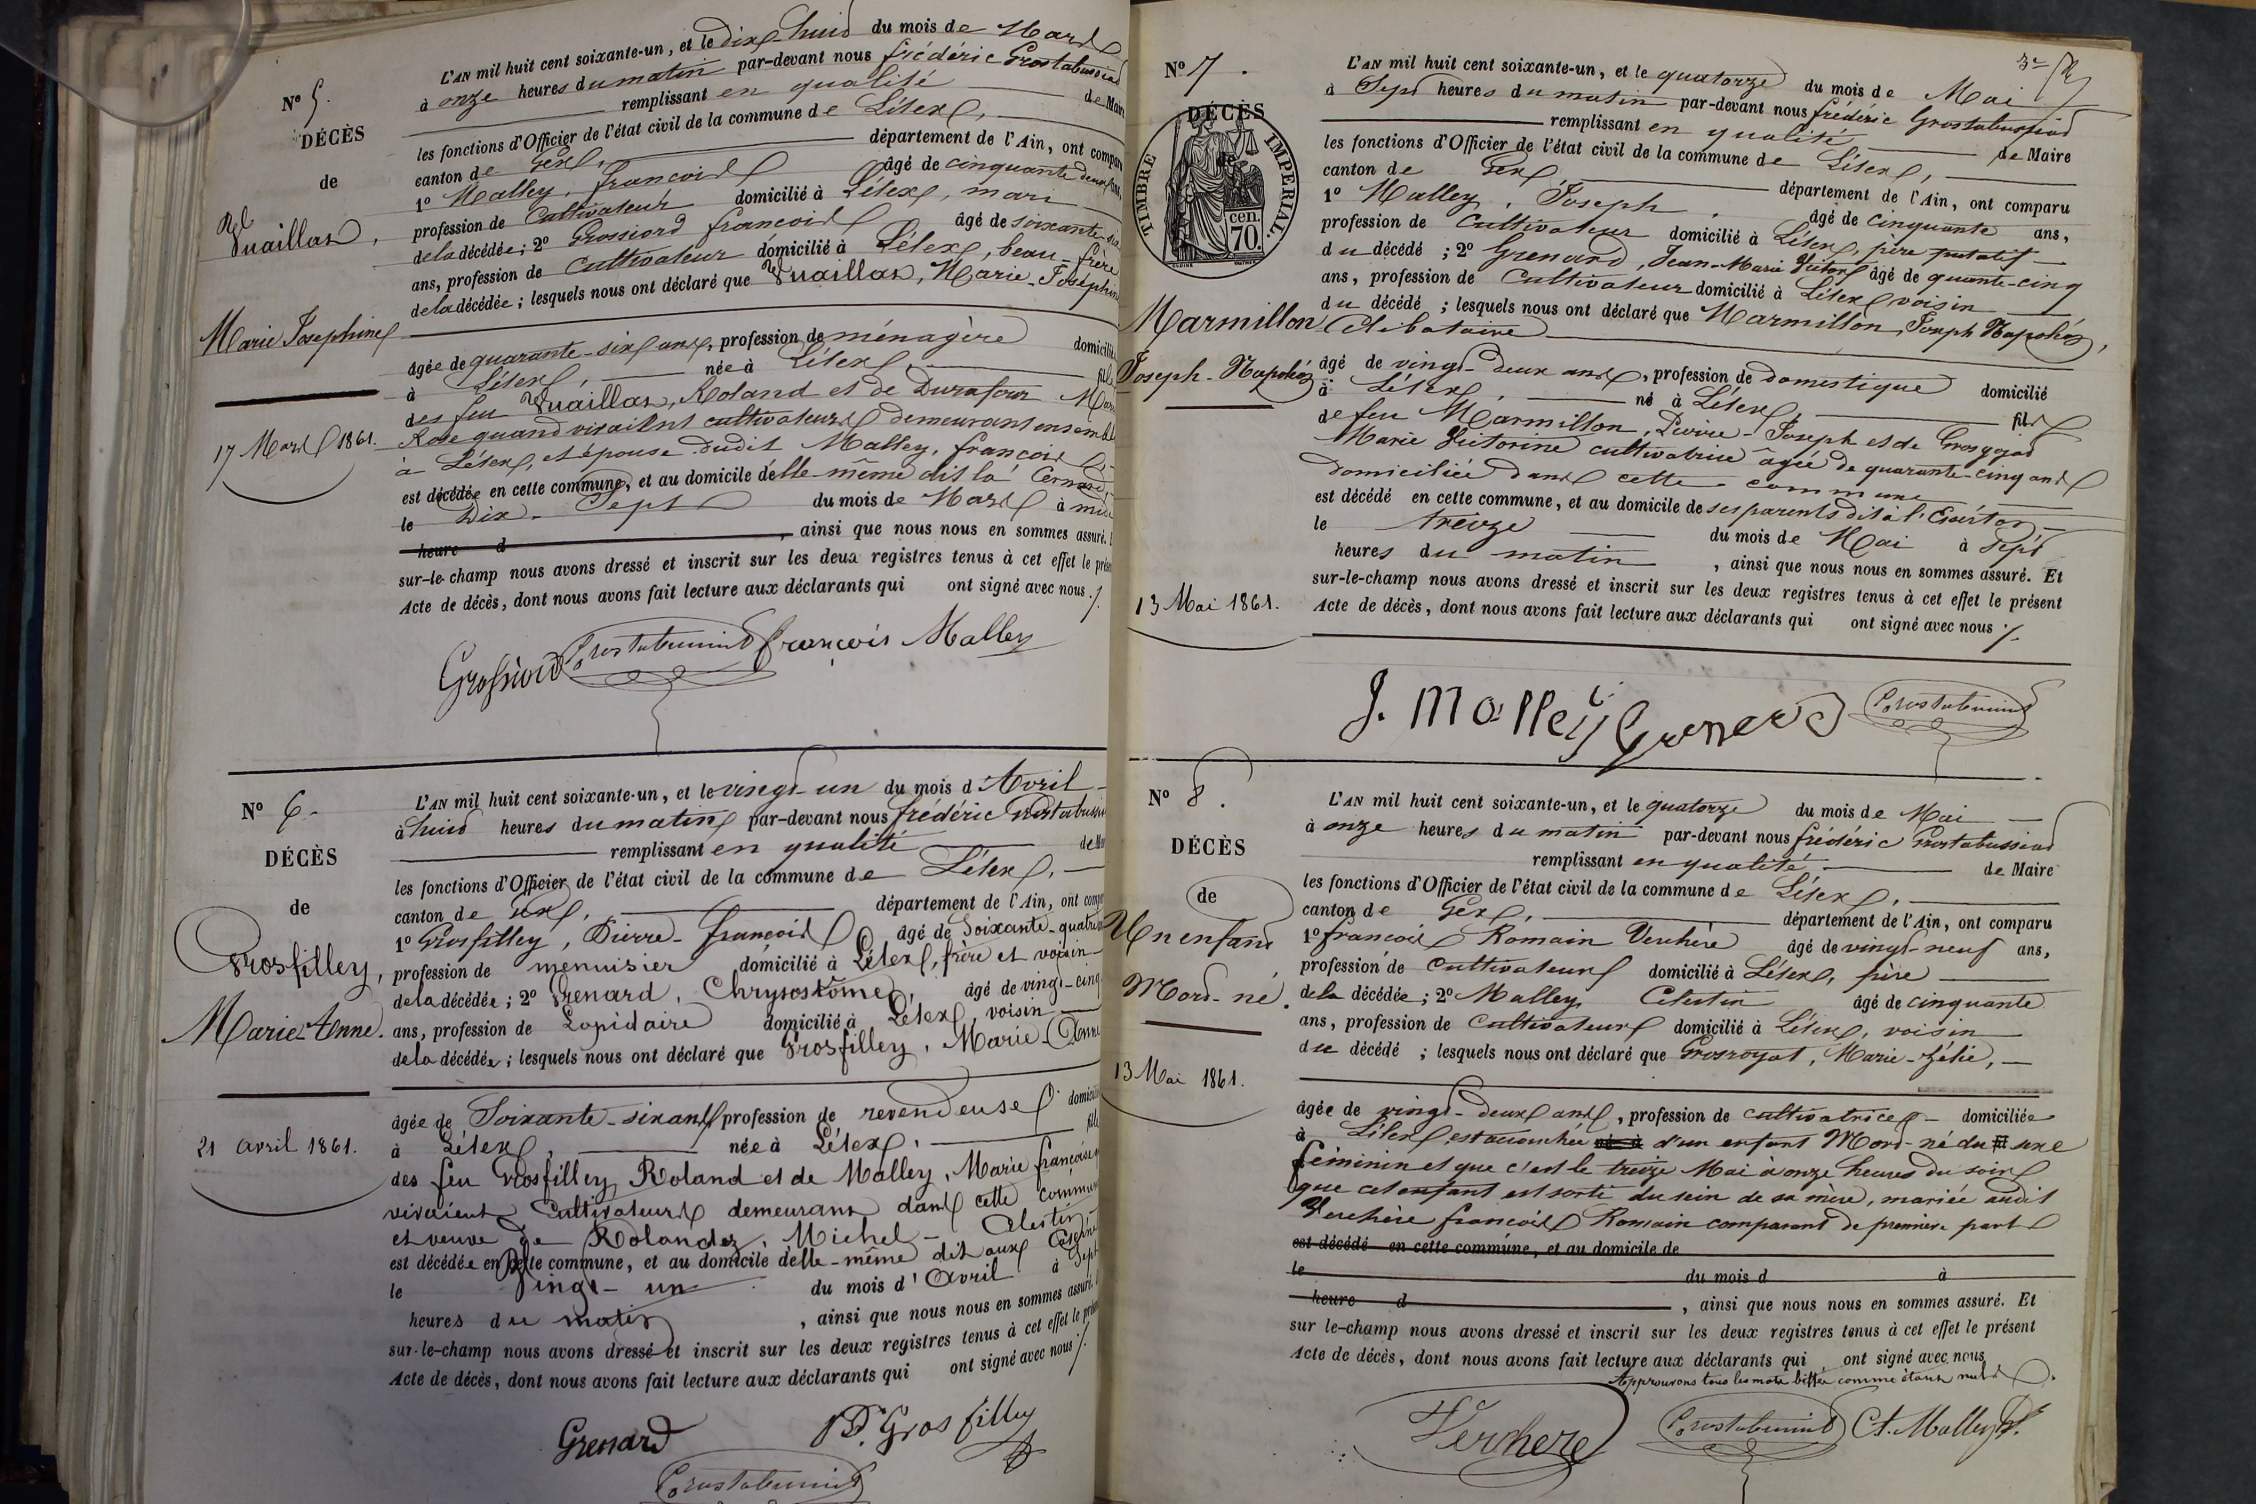 N° 5.
DÉCÈS
de
Vuaillat,
Marie Josephine
17 Mars 1861.
L'AN mil huit cent soixante-un, et le dix-huit du mois de Mars
à onze heures du matin par-devant nous frédéric Grostabussiat
remplissant en qualité de Maire
les fonctions d'Officier de l'état civil de la commune de Lélex,
canton de Gex, département de l'Ain, ont comparu
1° Malley, françois âgé de cinquante deux ans,
profession de Cultivateur domicilié à Lélex, mari
de la décédée; 2° Grossiord françois âgé de soixante-six
ans, profession de cultivateur domicilié à Lélex, beau-frère
de la décédée; lesquels nous ont déclaré que Vuaillat, Marie-Joséphine
âgée de quarante-six ans, profession de ménagère domiciliée
à Lélex, née à Lélex, fille
des feu Vuaillat, Roland et de Durafour Marie
Rose quand vivaient cultivateurs demeurant ensemble
à Lélex, et épouse dudit Malley, françois
est décédée en cette commune, et au domicile d'elle-même dit la
le Dix-Sept du mois de Mars à midi
heure d , ainsi que nous nous en sommes assuré.
sur-le-champ nous avons dressé et inscrit sur les deux registres tenus à cet effet le présent
Acte de décès, dont nous avons fait lecture aux déclarants qui ont signé avec nous ./.
Grossiord Grostabussiat françois Malley
N° 6
DÉCÈS
de
Grosfilley,
Marie-Anne.
21 avril 1861.
L'AN mil huit cent soixante-un, et le vingt-un du mois d'Avril
à huit heures du matin par-devant nous frédéric Grostabussiat
remplissant en qualité de Maire
les fonctions d'Officier de l'état civil de la commune de Lélex,
canton de Gex, département de l'Ain, ont comparu
1° Grosfilley, Pierre-françois âgé de Soixante-quatre
profession de menuisier domicilié à Lélex, frère et voisin
de la décédée; 2° Grenard, Chrysostôme, âgé de vingt-cinq
ans, profession de Lapidaire domicilié à Lélex, voisin
de la décédée; lesquels nous ont déclaré que Grosfilley, Marie-Anne
âgée de Soixante-six ans profession de revendeuse domiciliée
à Lélex, née à Lélex, fille
des feu Grosfilley Roland et de Malley, Marie françoise
vivaient Cultivateurs demeurant dans cette commune
et veuve de Rolandez, Michel-Célestin
est décédée en cette commune, et au domicile d'elle-même dit aux
le Vingt-un du mois d'Avril à Sept
heures du matin , ainsi que nous nous en sommes assuré.
sur-le-champ nous avons dressé et inscrit sur les deux registres tenus à cet effet le présent
Acte de décès, dont nous avons fait lecture aux déclarants qui ont signé avec nous ./.
Grenard P. Grosfilley
Grostabussiat
N° 7.
DÉCÈS
TIMBRE IMPÉRIAL.
cen.
70.
Marmillon
Joseph-Napoléon
13 Mai 1861.
L'AN mil huit cent soixante-un, et le quatorze du mois de Mai
à Sept heures du matin par-devant nous frédéric Grostabussiat
remplissant en qualité de Maire
les fonctions d'Officier de l'état civil de la commune de Lélex,
canton de Gex, département de l'Ain, ont comparu
1° Malley, Joseph, âgé de cinquante ans,
profession de Cultivateur domicilié à Lélex, père putatif
du décédé ; 2° Grenard, Jean-Marie Victor âgé de quante-cinq
ans, profession de Cultivateur domicilié à Lélex voisin
du décédé ; lesquels nous ont déclaré que Marmillon, Joseph Napoléon,
Célibataire
âgé de vingt-deux ans, profession de domestique domicilié
à Lélex, né à Lélex, fils
de feu Marmillon, Pierre-Joseph et de Grosgojat
Marie Victorine cultivatrice âgée de quarante-cinq ans
domiciliée dans cette commune
est décédé en cette commune, et au domicile de ses parents dit à l'
le treize du mois de Mai à Sept
heures du matin , ainsi que nous nous en sommes assuré. Et
sur-le-champ nous avons dressé et inscrit sur les deux registres tenus à cet effet le présent
Acte de décès, dont nous avons fait lecture aux déclarants qui ont signé avec nous ./.
J. Malley Grenard Grostabussiat
N° 8.
DÉCÈS
de
Un enfant
Mort-né.
13 Mai 1861.
L'AN mil huit cent soixante-un, et le quatorze du mois de Mai
à onze heures du matin par-devant nous frédéric Grostabussiat
remplissant en qualité de Maire
les fonctions d'Officier de l'état civil de la commune de Lélex,
canton de Gex, département de l'Ain, ont comparu
1° françois Romain Verchère âgé de vingt-neuf ans,
profession de cultivateur domicilié à Lélex, père
de la décédée; 2° Malley Célestin âgé de cinquante
ans, profession de Cultivateur domicilié à Lélex, voisin
du décédé ; lesquels nous ont déclaré que Grosroyat, Marie-Zélie,
âgée de vingt-deux ans, profession de cultivatrice domiciliée
à Lélex, est accouchée né à d'un enfant Mort-né du sexe
féminin et que c'est le treize Mai à onze heures du soir
que cet enfant est sorti du sein de sa mère, mariée audit
Verchère françois Romain comparant de première part
est décédé en cette commune, et au domicile de
le du mois d à
heure d , ainsi que nous nous en sommes assuré. Et
sur le-champ nous avons dressé et inscrit sur les deux registres tenus à cet effet le présent
Acte de décès, dont nous avons fait lecture aux déclarants qui ont signé avec nous
Approuvons tous les mots biffés comme étant nuls
Verchere Grostabussiat Ct. Malley